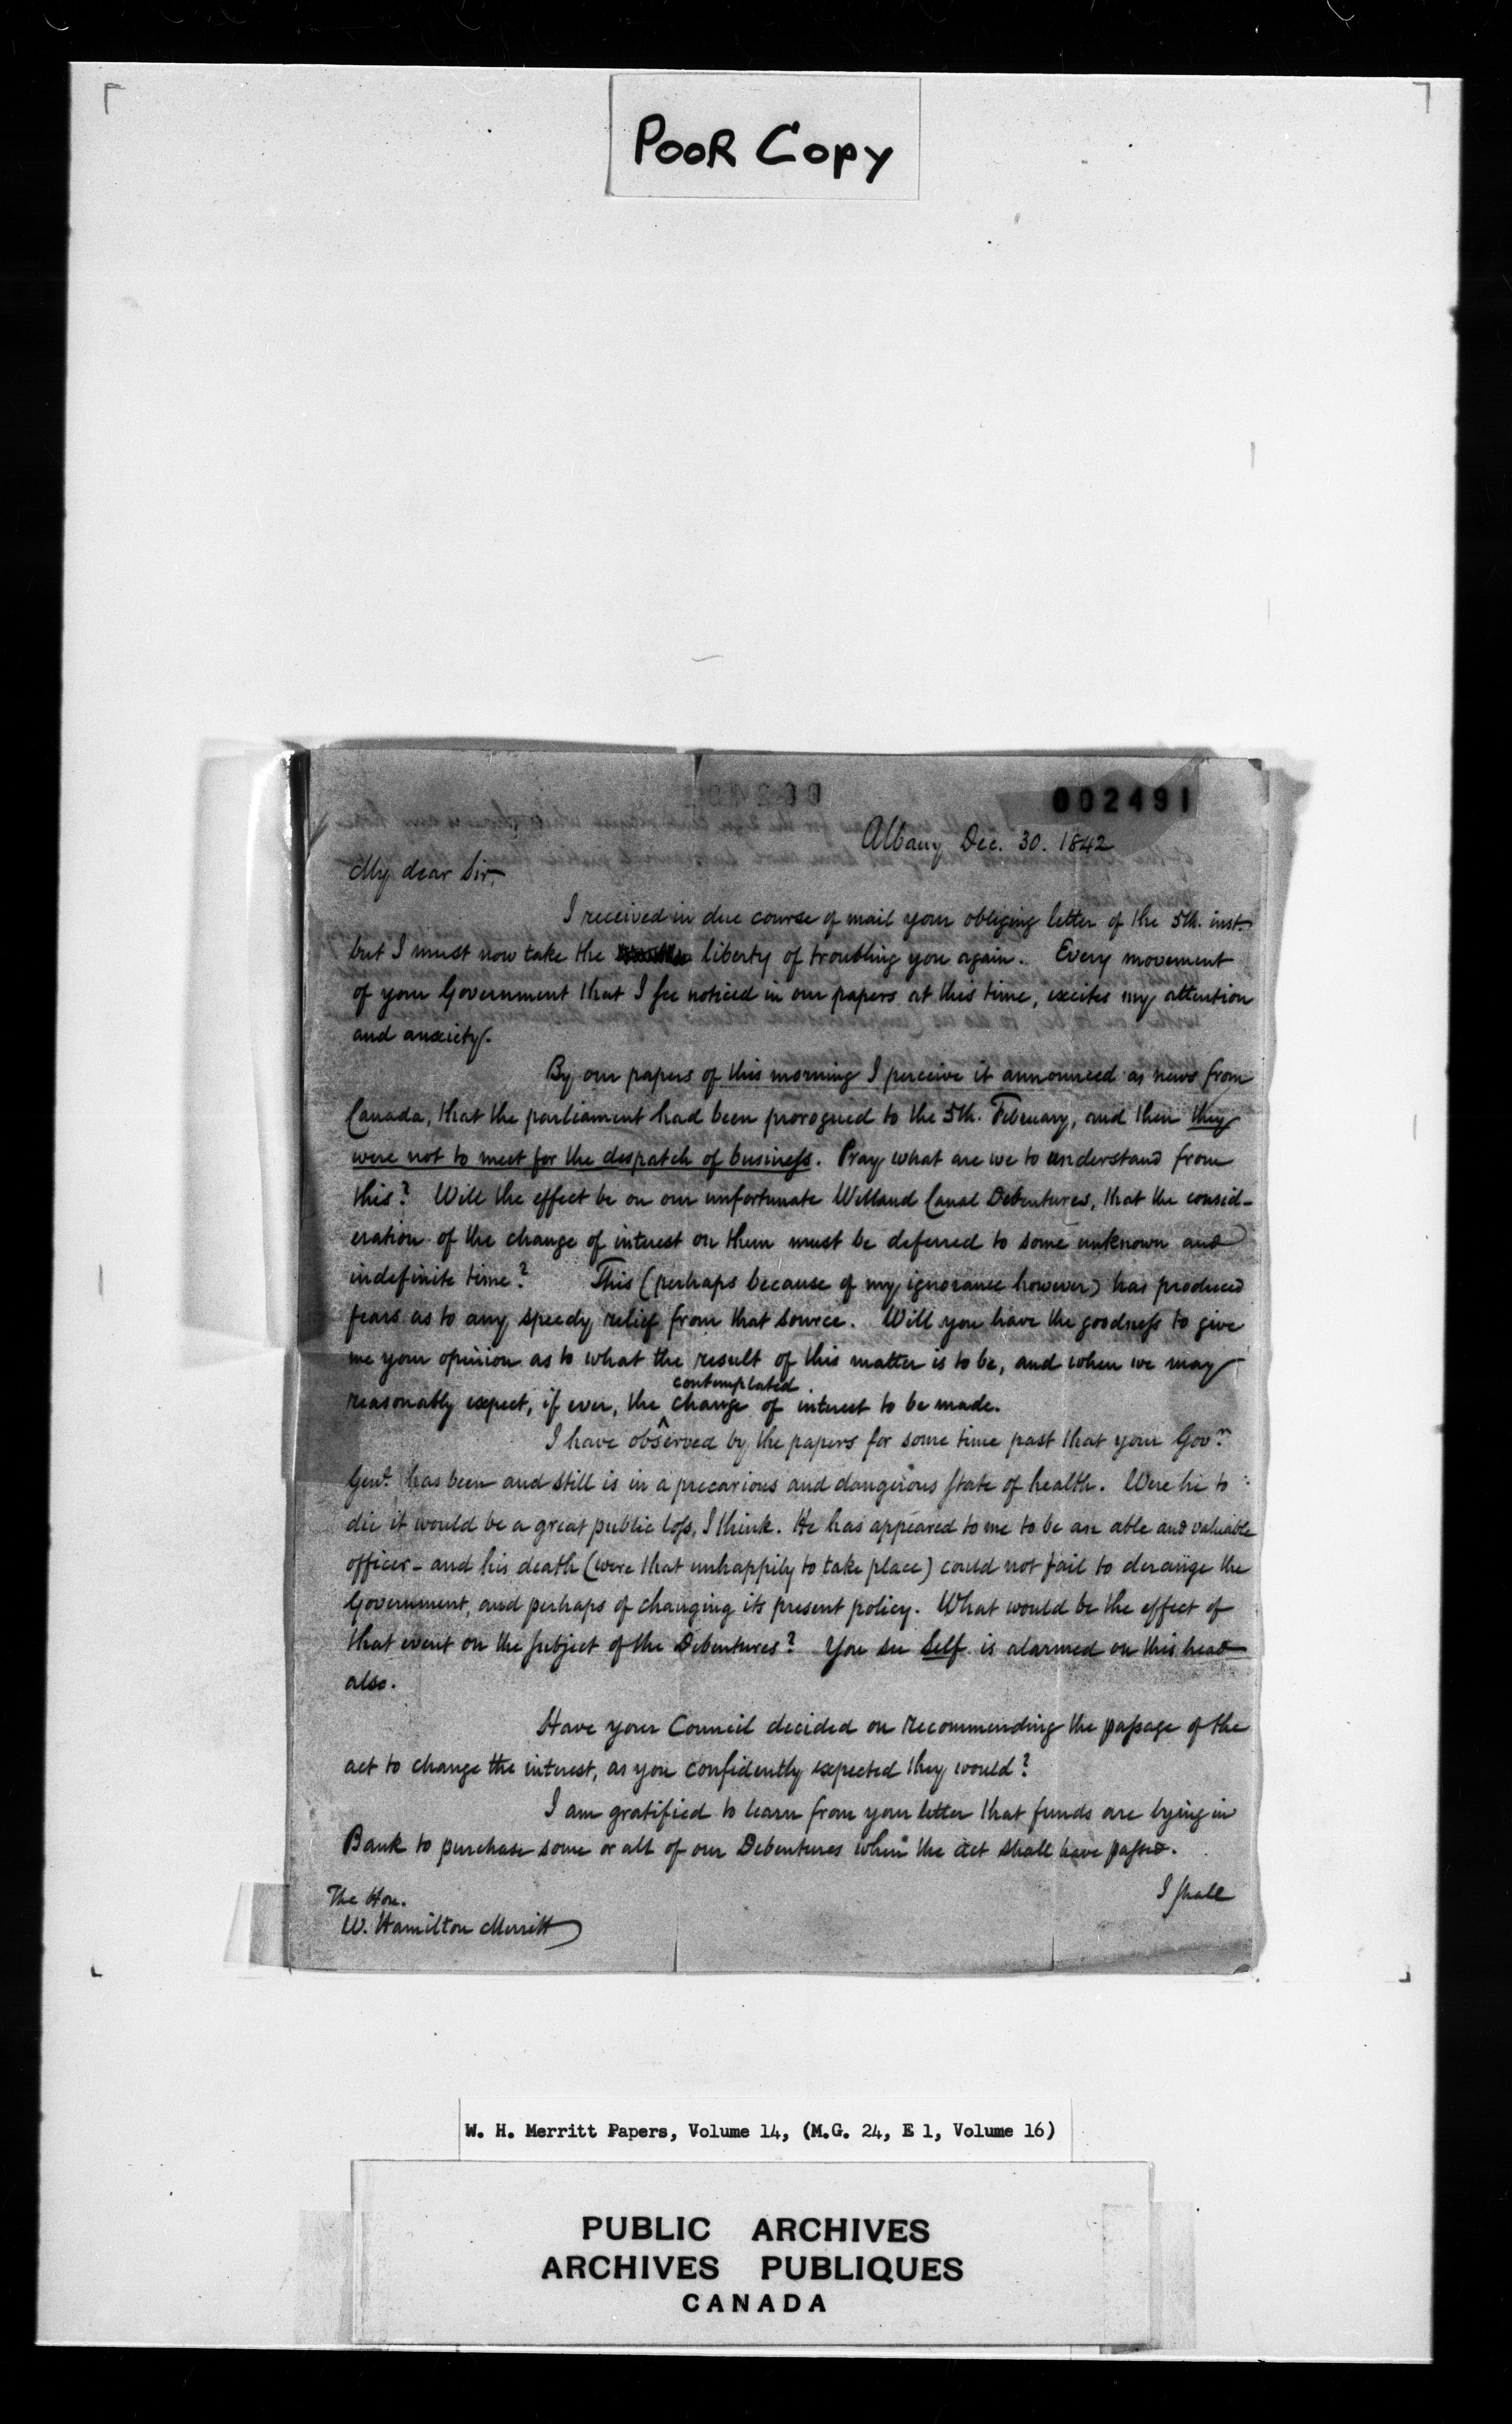 POOR COPY
002491
Albany Dec. 30. 1842
My dear Sir,
I received in due course of mail your obliging letter of the 5th. inst.
but I must now take the liberty of troubling you again. Every movement
of your Government that I see noticed in our papers at this time, excites my attention
and anxiety.
By our papers of this morning I perceive it announced as news from
Canada, that the parliament had been prorogued to the 5th. February, and then they
were not to meet for the despatch of business. Pray what are we to understand from
this? Will the effect be on our unfortunate Welland Canal Debentures, that the consid-
eration of the change of interest on them must be deferred to some unknown and
indefinite time? This (perhaps because of my ignorance however) has produced
fears as to any speedy relief from that source. Will you have the goodness to give
me your opinion as to what the result of this matter is to be, and when we may
contemplated
reasonably expect, if ever, the ^ change of interest to be made.
I have observed by the papers for some time past that your Govr.
Genl. has been and still is in a precarious and dangerous state of health. Were he to
die it would be a great public loss, I think. He has appeared to me to be an able and valuable
officer - and his death (were that unhappily to take place) could not fail to derange the
Government, and perhaps of changing its present policy. What would be the effect of
that event on the subject of the Debentures? You see Self is alarmed on this head
also.
Have your Council decided on recommending the passage of the
act to change the interest, as you confidently expected they would?
I am gratified to learn from your letter that funds are lying in
Bank to purchase some or all of our Debentures when the act shall have passed.
I shall
The Hon.
W. Hamilton Merritt
W. H. Merritt Papers, Volume 14, (M.G. 24, E 1, Volume 16)
PUBLIC ARCHIVES
ARCHIVES PUBLIQUES
CANADA